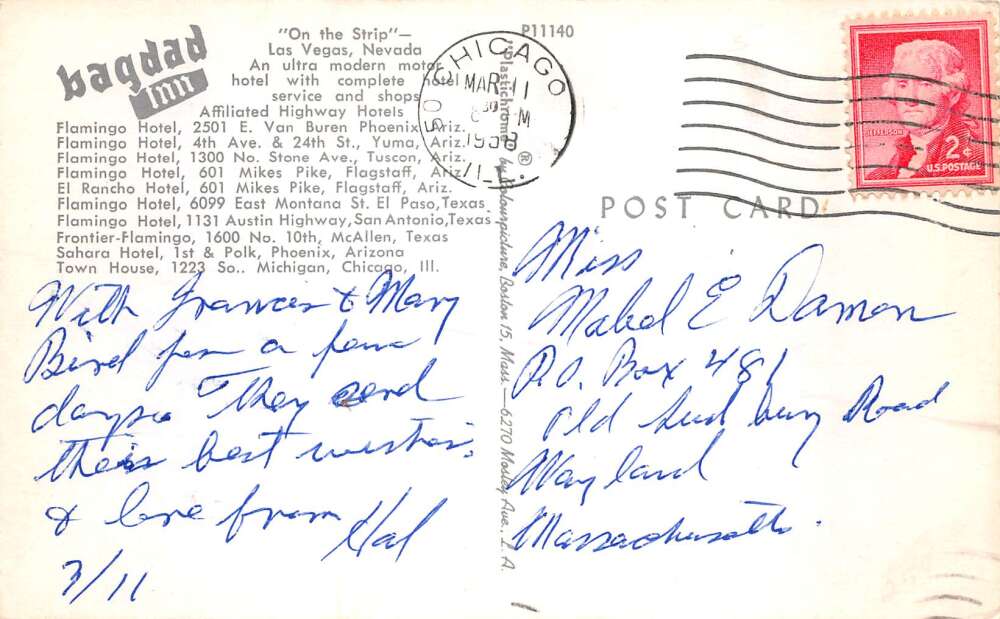 bagdad
Inn
"On the Strip"—
Las Vegas, Nevada
An ultra modern motor
hotel with complete hotel
service and shops
Affiliated Highway Hotels
Flamingo Hotel, 2501 E. Van Buren Phoenix, Ariz.
Flamingo Hotel, 4th Ave. & 24th St., Yuma, Ariz.
Flamingo Hotel, 1300 No. Stone Ave., Tuscon, Ariz.
Flamingo Hotel, 601 Mikes Pike, Flagstaff, Ariz.
El Rancho Hotel, 601 Mikes Pike, Flagstaff, Ariz.
Flamingo Hotel, 6099 East Montana St. El Paso, Texas
Flamingo Hotel, 1131 Austin Highway, San Antonio, Texas
Frontier-Flamingo, 1600 No. 10th, McAllen, Texas
Sahara Hotel, 1st & Polk, Phoenix, Arizona
Town House, 1223 So.. Michigan, Chicago, Ill.
With Frances & Mary
Bird for a few
days. They send
their best wishes.
& love from
Hal
3/11
P11140
"Plastichrome"® by Colourpicture, Boston 15, Mass.—6270 Mosley Ave. L.A.
CHICAGO
MAR 11
30
M
1958
ILL.
50
JEFFERSON
2¢
U.S. POSTAGE
POST CARD
Miss
Mabel E Damon
P.O. Box 481
Old Sudbury Road
Wayland
Massachusetts.